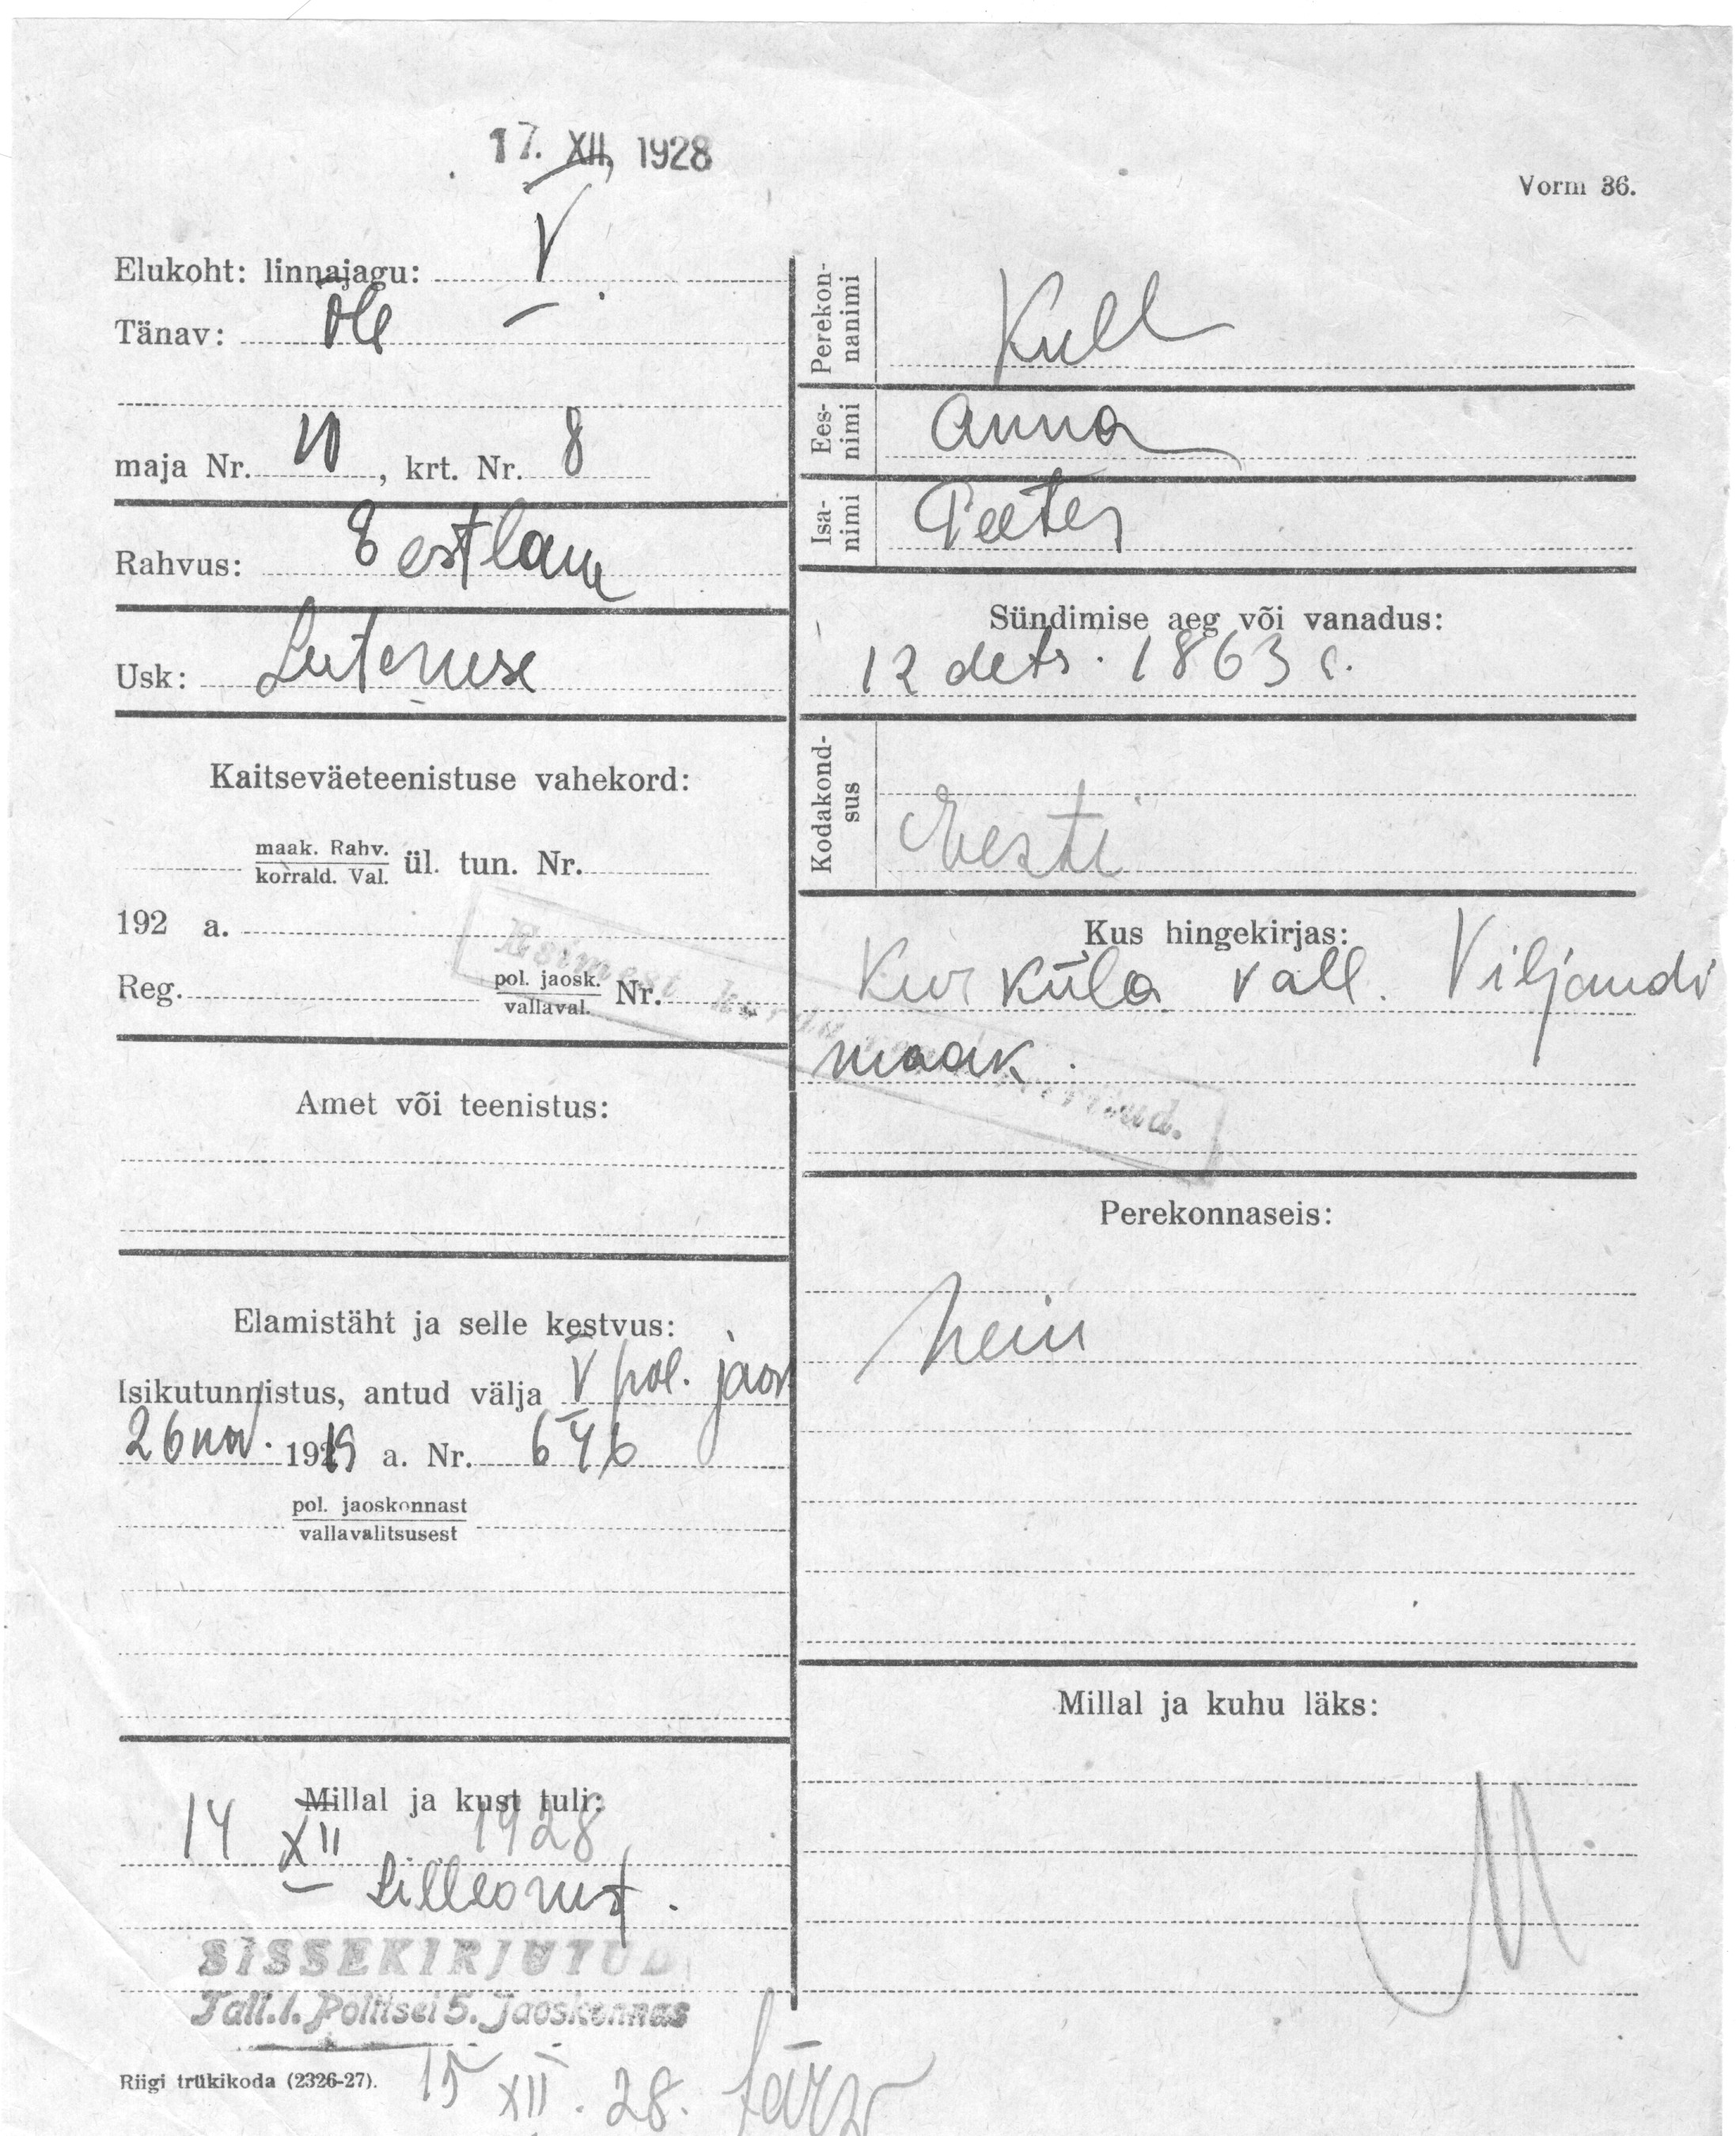 17. XII, 1928
Vorm 36.
Elukoht: linnajagu: V
Tänav: Õle
maja Nr. 10, krt. Nr. 8
Rahvus: Eestlane
Usk: Luteruse
Kaitseväeteenistuse vahekord:
maak. Rahv.
korrald. Val. ül. tun. Nr.
192 a.
Reg. pol. jaosk.
vallaval. Nr.
Amet või teenistus:
Elamistäht ja selle kestvus:
Isikutunnistus, antud välja V pol. jaos
26 nov. 1919 a. Nr. 646
pol. jaoskonnast
vallavalitsusest
Millal ja kust tuli:
14 XII 1928
Lilleorust.
SISSEKIRJUTUD
Tall.l. Politsei 5. Jaoskonnas
Riigi trükikoda (2326-27).
15 XII. 28.
Perekon-
nanimi
Kull
Ees-
nimi
Anna
Isa-
nimi
Peeter
Sündimise aeg või vanadus:
12 dets. 1863
Kodakond-
sus
Eesti
Kus hingekirjas:
küla vall. Viljandi
maak.
Esimest
Perekonnaseis:
Millal ja kuhu läks: